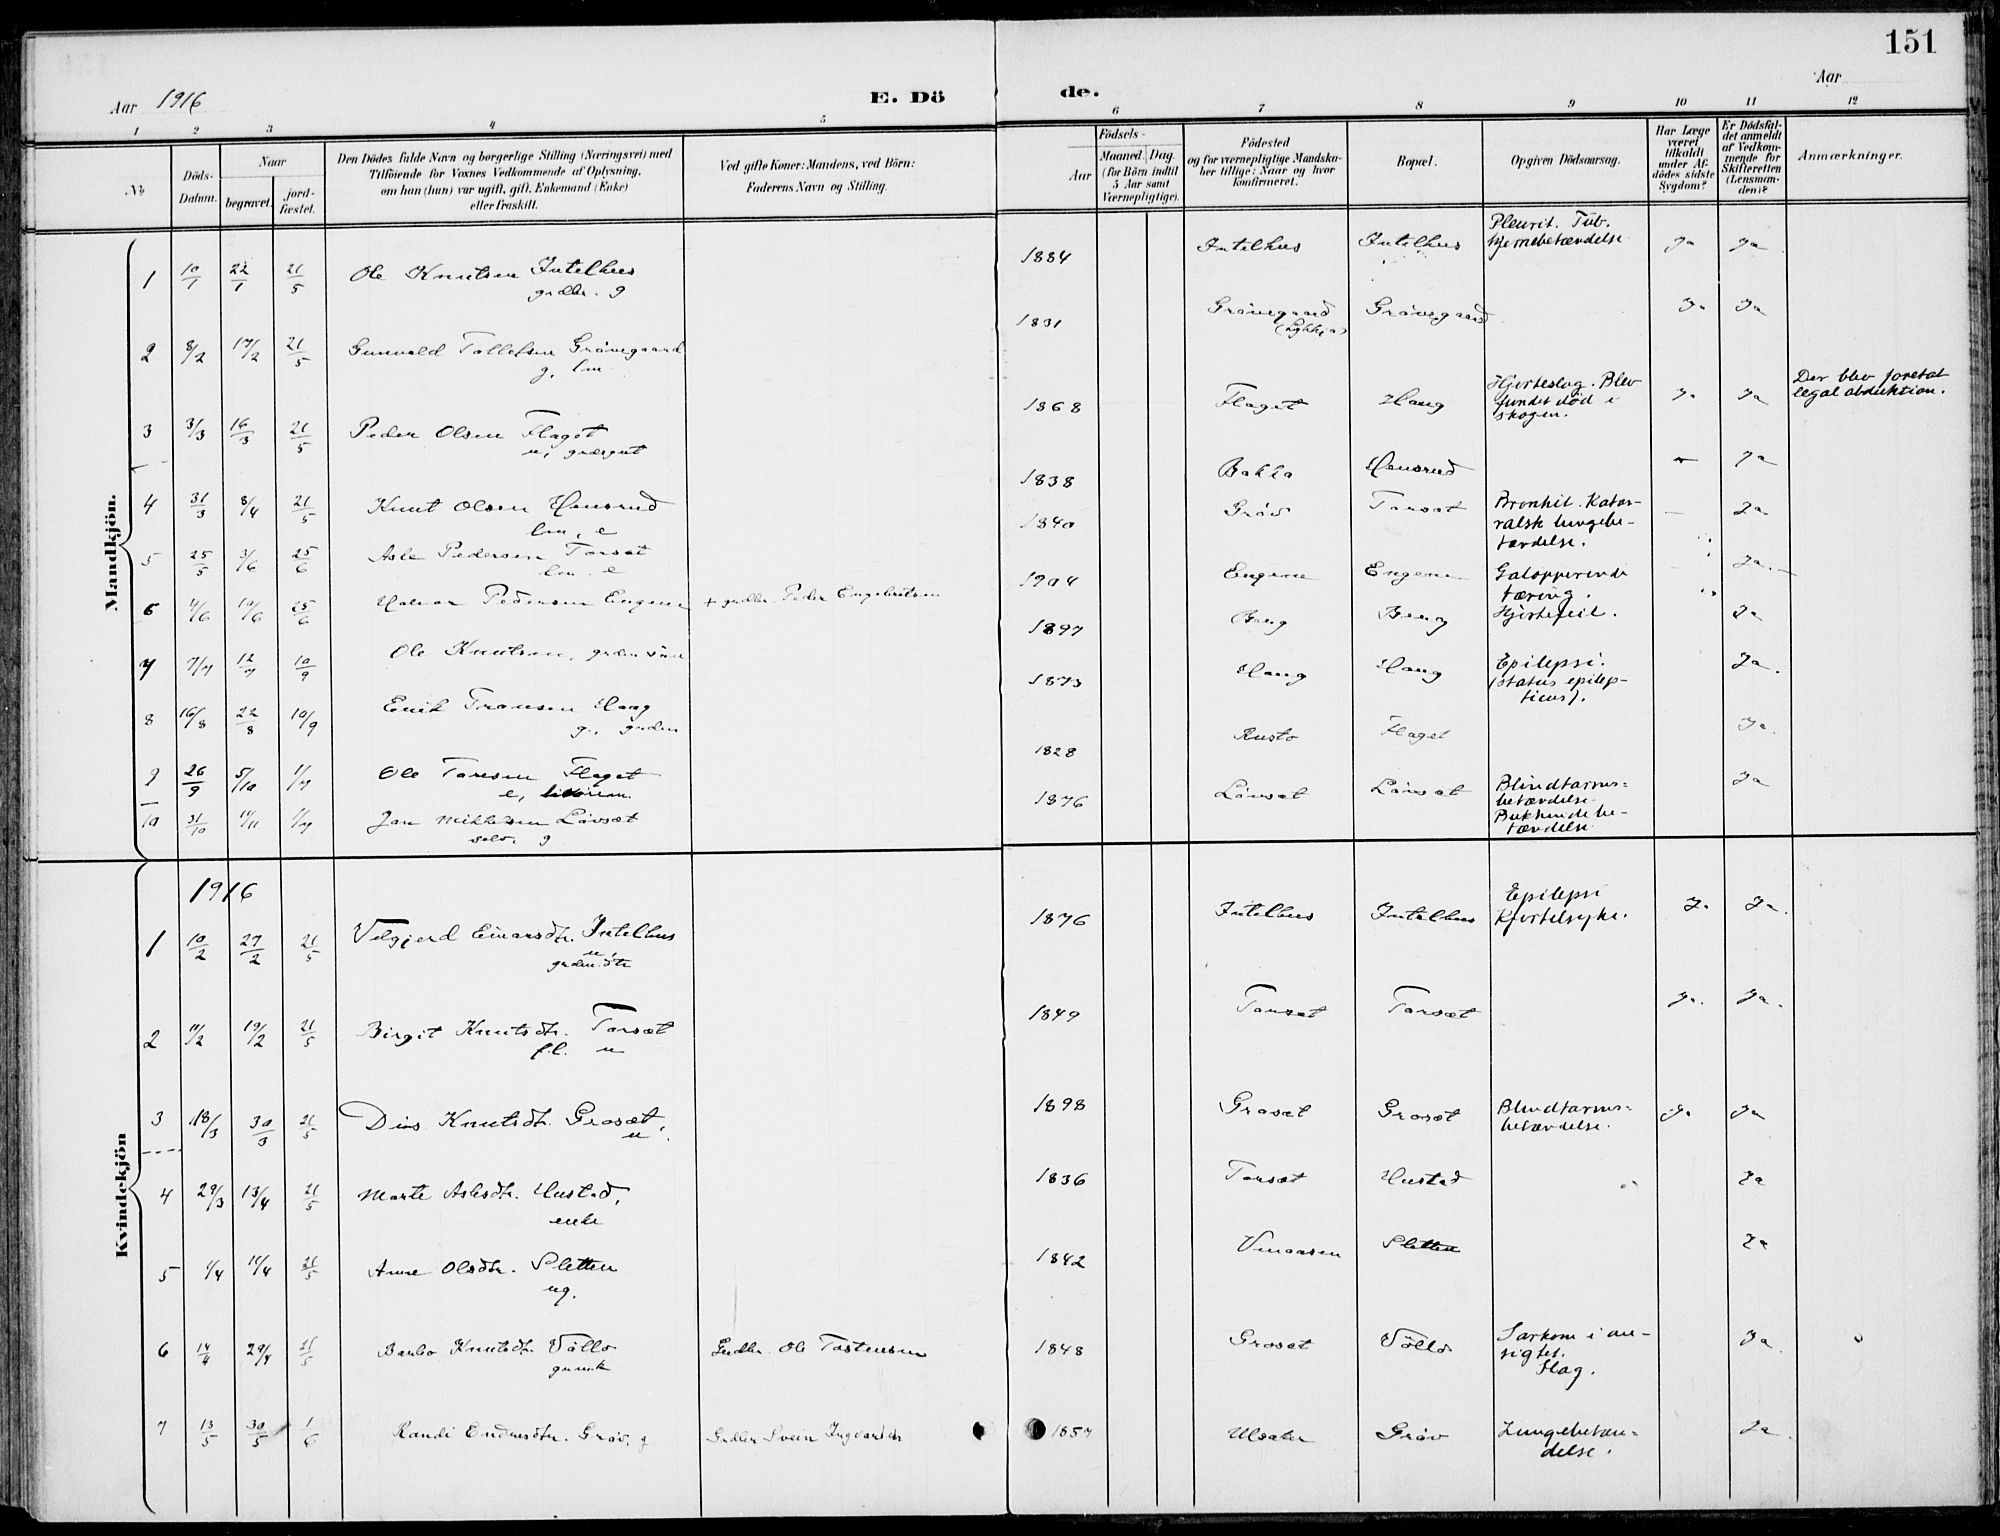 151
Aar 1916
E. Dö
de.
Aar
1 2 3 4 5 6 7 8 9 10 11 12
No
Döds-Datum.
Naar
begravet.
jord-fæstet.
Den Dödes fulde Navn og borgerlige Stilling (Næringsvei) med
Tilföiende for Voxnes Vedkommende af Oplysning,
om han (hun) var ugift, gift, Enkemand (Enke)
eller fraskilt.
Ved gifte Koner: Mandens, ved Börn:
Faderens Navn og Stilling.
Födsels-
Aar
Maaned. Dag.
(for Börn indtil
5 Aar samt
Værnepligtige).
Födested
og for værnepligtige Mandska-
ber tillige: Naar og hvor
konfirmeret.
Bopæl.
Opgiven Dödsaarsag.
Har Læge
været
tilkaldt
under Af-
dödes sidste
Sygdom?
Er Dödsfal-
det anmeldt
af Vedkom-
mende for
Skifteretten
(Lensman-
den)?
Anmærkninger.
Mandkjön.
1 10/1 22/1 21/5 Ole Knutsen Intelhus 1884 Intelhus Intelhus Pleurit. Tub. Ja Ja
grdbr. g Hjernebetændelse
2 8/2 17/2 21/5 Gunvald Tollefsen Grönsgaard 1831 Grönsgaard Grönsgaard Ja Ja
g. lm
3 3/3 16/3 21/5 Peder Olsen Flaget 1868 Flaget Haug Hjerteslag. Blev Ja Ja Der blev foretat
u, fundet död i legal obduktion.
skogen.
4 31/3 8/4 21/5 Knut Olsen Hensrud 1838 Bakka Hensrud Ja
lm, e
5 25/5 3/6 25/6 Asle Pedersen Torsæt 1840 Gröv Torsæt Bronkit. Katar- — Ja
lm. e ralsk lungebe-
tændelse.
6 4/6 10/6 25/6 Halvor Pedersen Engene + grdbr. Peder Engebretsen 1904 Engene Engene Galopperende Ja
tæring.
7 7/7 12/7 10/9 Ole Knutsen, 1897 Berg Berg Hjertefeil. Ja
8 16/8 22/8 10/9 Erik Tronsen Haug 1873 Haug Haug Epilepsi. Ja.
g., (status epilep-
ticus).
9 26/9 5/10 1/7 Ole Toresen Flaget 1828 Rusto Flaget Ja.
e,
10 31/10 11/11 1/7 Jon Mikkelsen Lövsæt 1876 Lövsæt Lövsæt Blindtarms- Ja
selv. g betændelse
Bukhindebe-
tændelse
Kvindekjön
1916
1 10/2 27/2 21/5 Vilgjerd Einarsdtr. Intelhus 1876 Intelhus Intelhus Epilepsi Ja Ja.
u, Kjertelsyke.
2 11/2 19/2 21/5 Birgit Knutsdtr. Torsæt 1849 Torsæt Torsæt Ja. Ja.
fl. u
3 18/3 30/3 21/5 Knutsdtr. Grosæt, 1898 Grosæt Grosæt Blindtarms- Ja Ja
u betændelse.
4 29/3 13/4 21/5 Marte Aslesdtr. Hustad, 1836 Torsæt Hustad Ja
enke
5 1/4 11/4 21/5 Anne Olsdtr. Sletten 1842 Sletten Ja
ug.
6 14/4 29/4 21/5 Barbo Knutsdtr. Völlo Grdbr. Ole Tostensen 1848 Grosæt Völlo Sarkom i an- Ja.
sigtet.
Slag.
7 13/5 30/5 1/6 Randi Endresdtr. Gröv. g Grdbr Svein 1857 Ulsaker Gröv Lungebetæn- Ja.
delse.